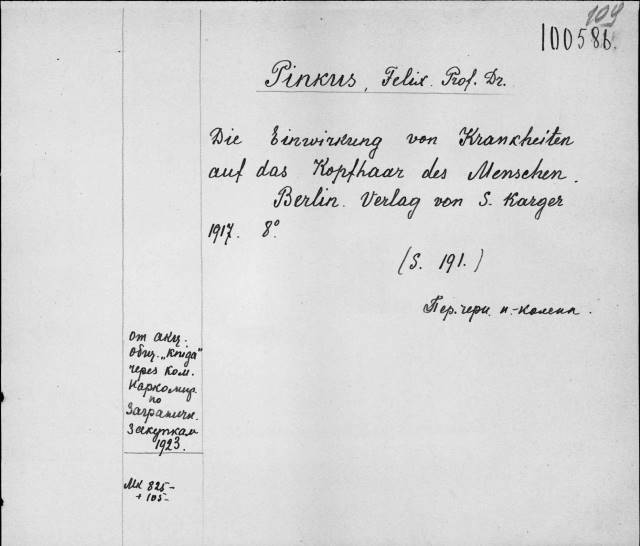 109
100586.
Pinkus, Felix. Prof. Dr.
Die Einwirkung von Krankheiten
auf das Kopfhaar des Menschen.
Berlin. Verlag von S. Karger
1917. 8°
(S. 191.)
Пер. черн. п.-колен.
от акц.
общ. „Книга"
через Ком.
Наркомпр.
по
Заграничн.
Закупкам
1923.
Мк 825-
+ 105-